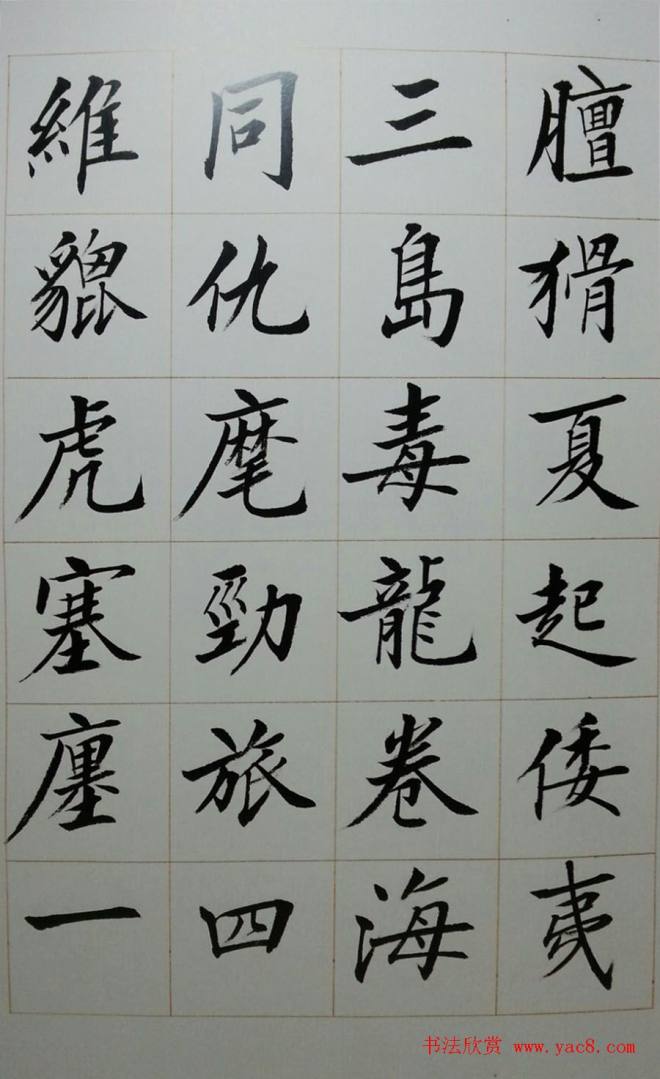 膻猾夏起倭夷
三島毒龍卷海
同仇麾勁旅四
維貔虎塞廛一
书法欣赏 www.yac8.com